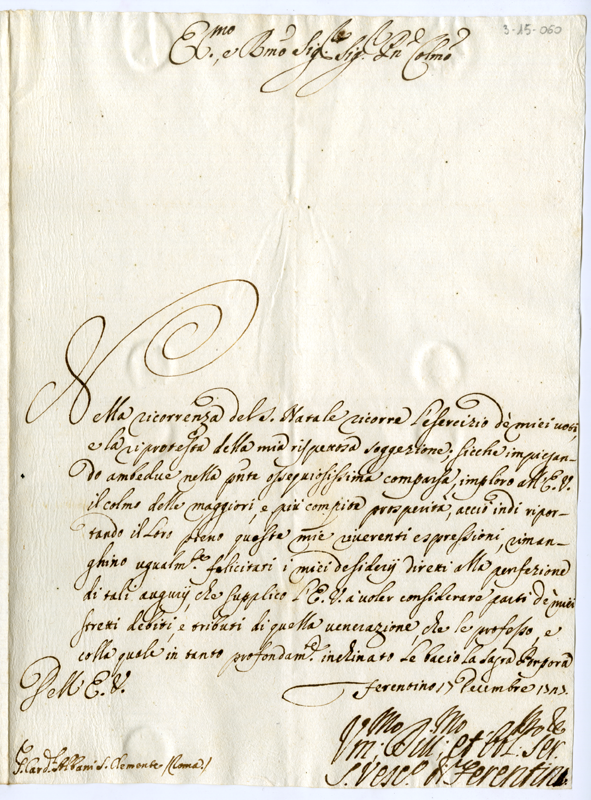 3-15-060
Em.mo, e Rmo Sig.re Sig.r Pn Colmo
Nella ricorrenza del S. Natale ricorre l'esercizio de miei voti,
e la riprotesta della mia rispettosa soggezione. Sicche impiegan-
do ambedue nella pnte ossequiosissima comparsa, imploro all'E.V.
il colmo delle maggiori, e più compite prosperità, acciò indi ripor-
tando il loro pieno queste mie riverenti espressioni, riman-
ghino ugualm.te felicitati i miei desiderij diretti alla perfezione
di tali augurij, che supplico l'E.V. a voler considerare parti de miei
stretti debiti, e tributi di quella venerazione che le professo, e
colla quale in tanto profondam.te inchinato Le bacio La Sagra Porpora
Dell'E.V.
Ferentino 17 Decembre
S. Card. Albani S. Clemente (Roma)
Um. et Ser
S. Vesc.o di Ferentino